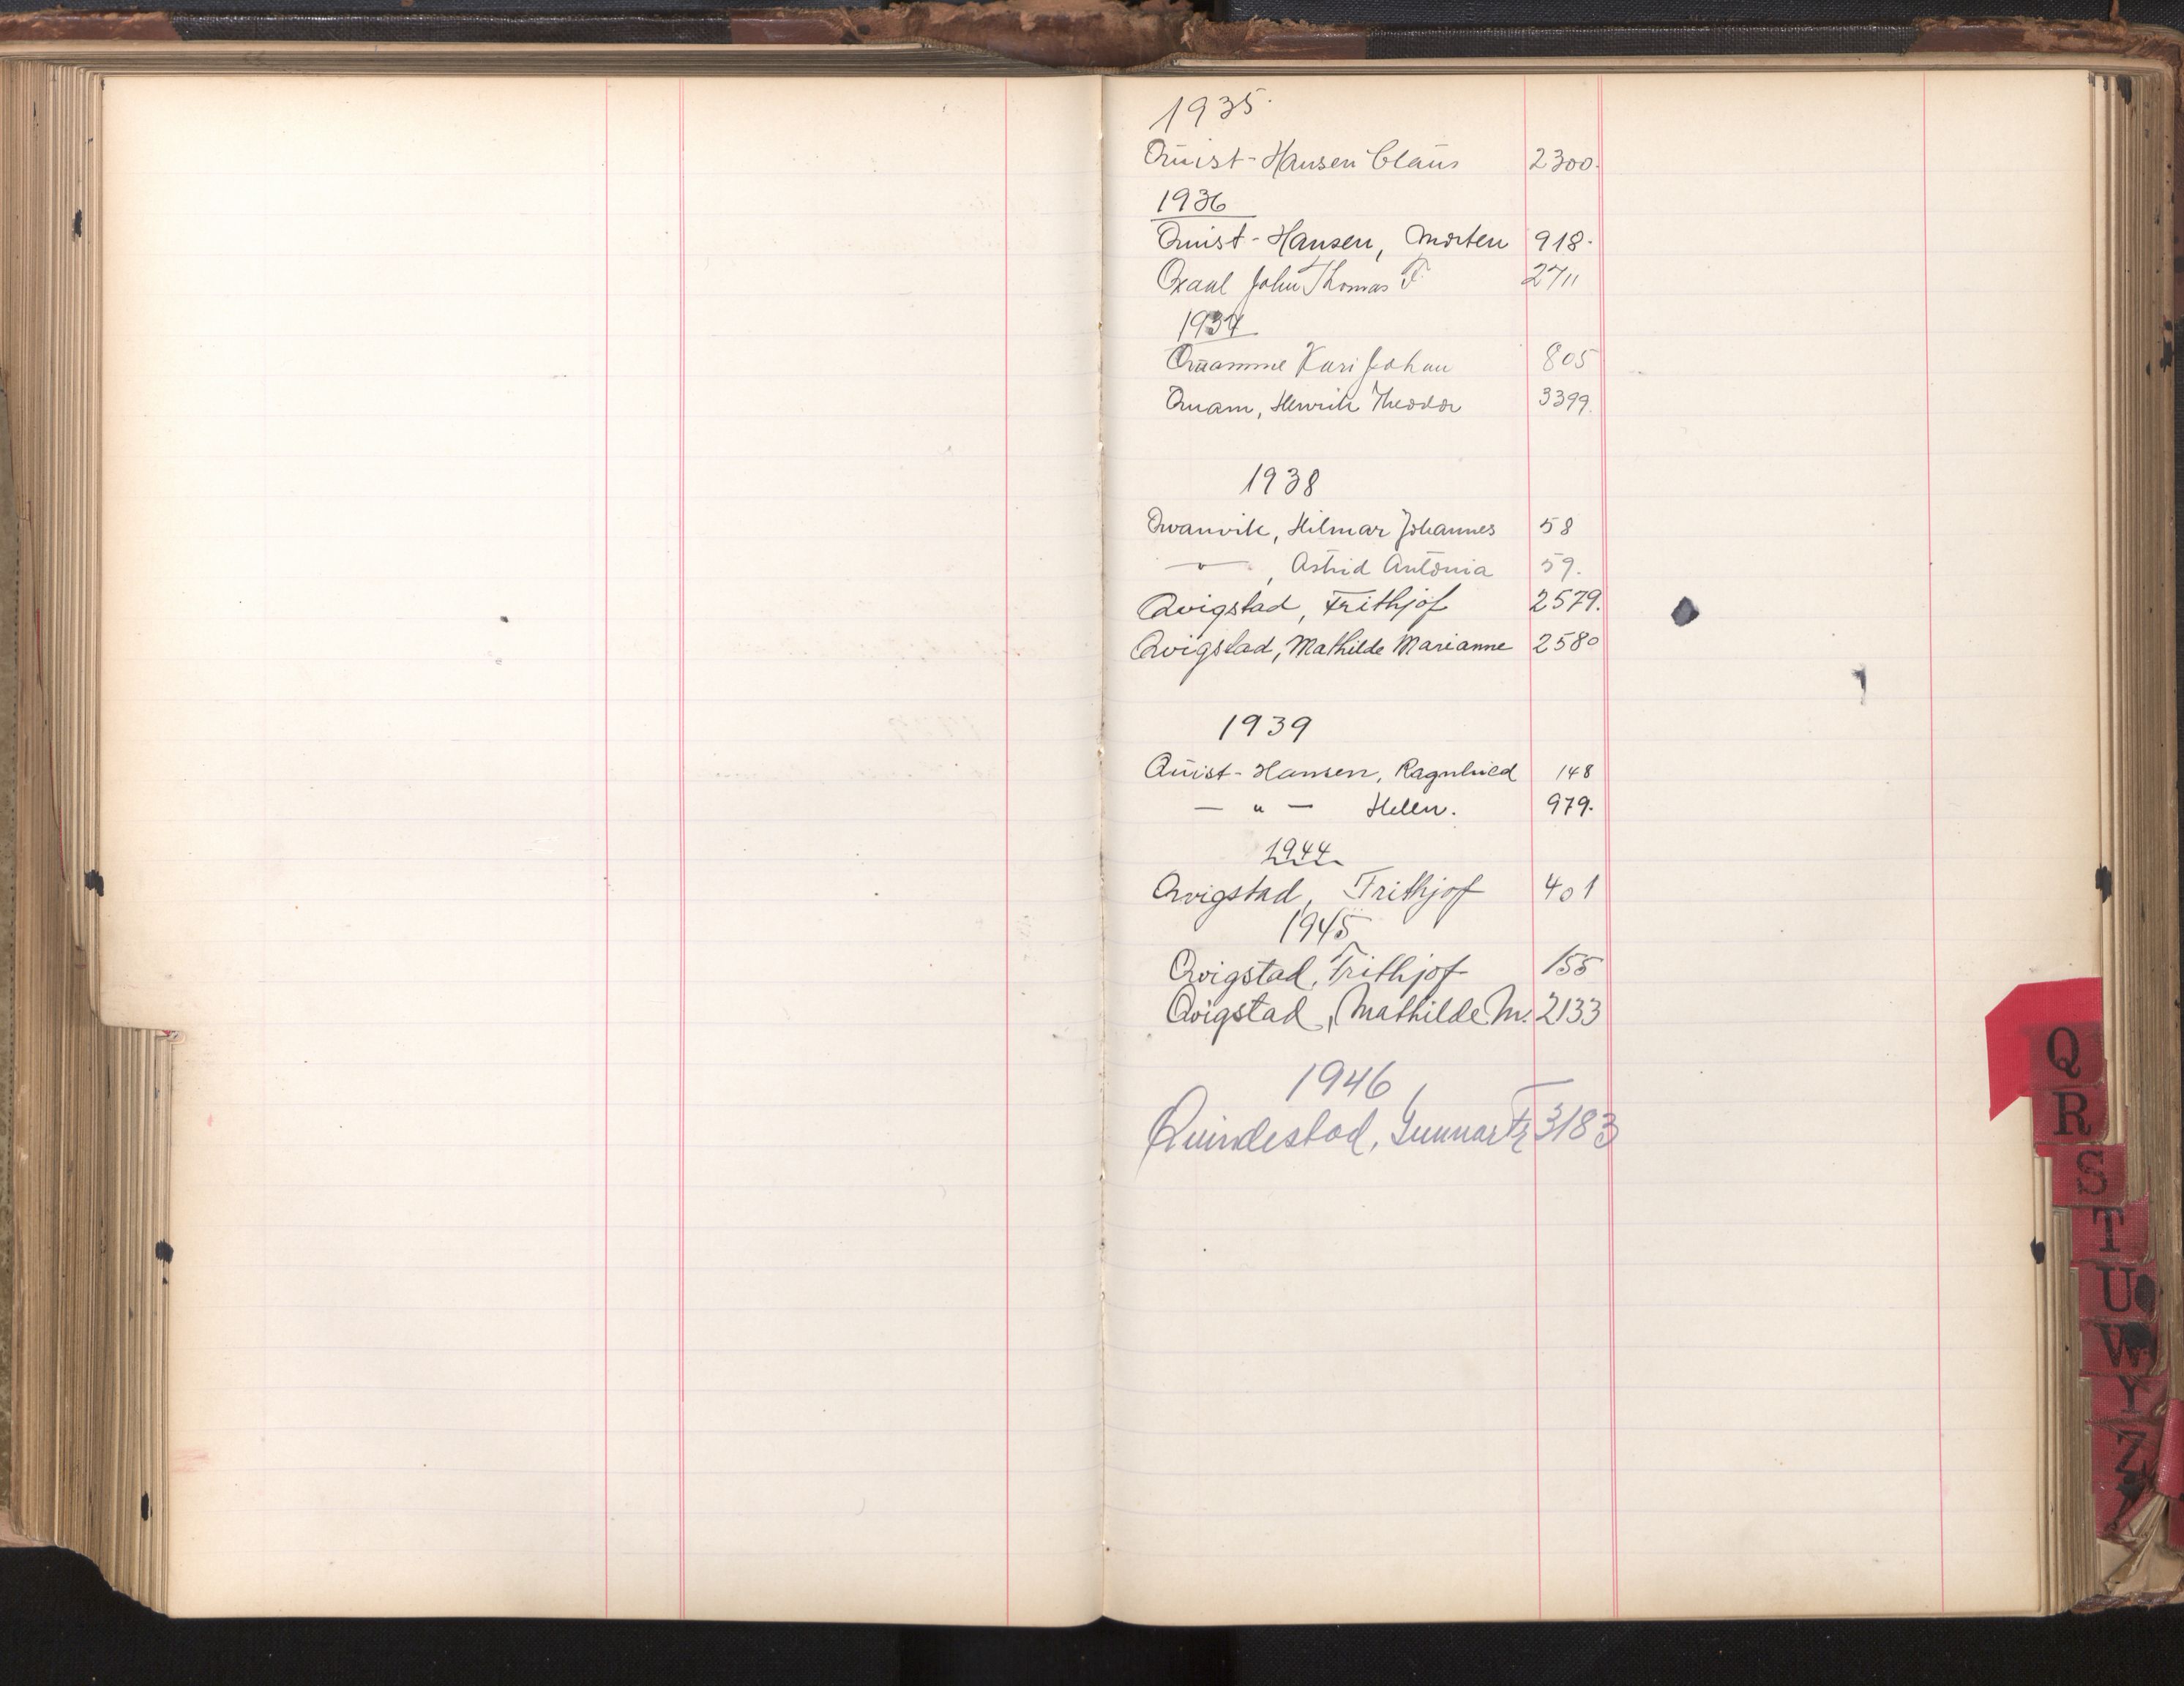 1935.
Quist-Hansen Claus 2300.
1936
Quist-Hansen, Morten 918.
John Thomas F 2711
1937
Quamme Kari Johan 805
Quam, Henrik Theodor 3399.
1938
Qvanvik, Hilmar Johannes 58
— " —, Astrid Antonia 59.
Qvigstad, Frithjof 2579.
Qvigstad, Mathilde Marianne 2580
1939
Quist-Hansen, Ragnhild 148
— " — Helen. 979.
1944
Qvigstad, Frithjof 401
1945
Qvigstad, Frithjof 155
Qvigstad, Mathilde M. 2133
1946
Quindestad, Gunnar 3183
Q
R
S
T
U
W
Y
Z